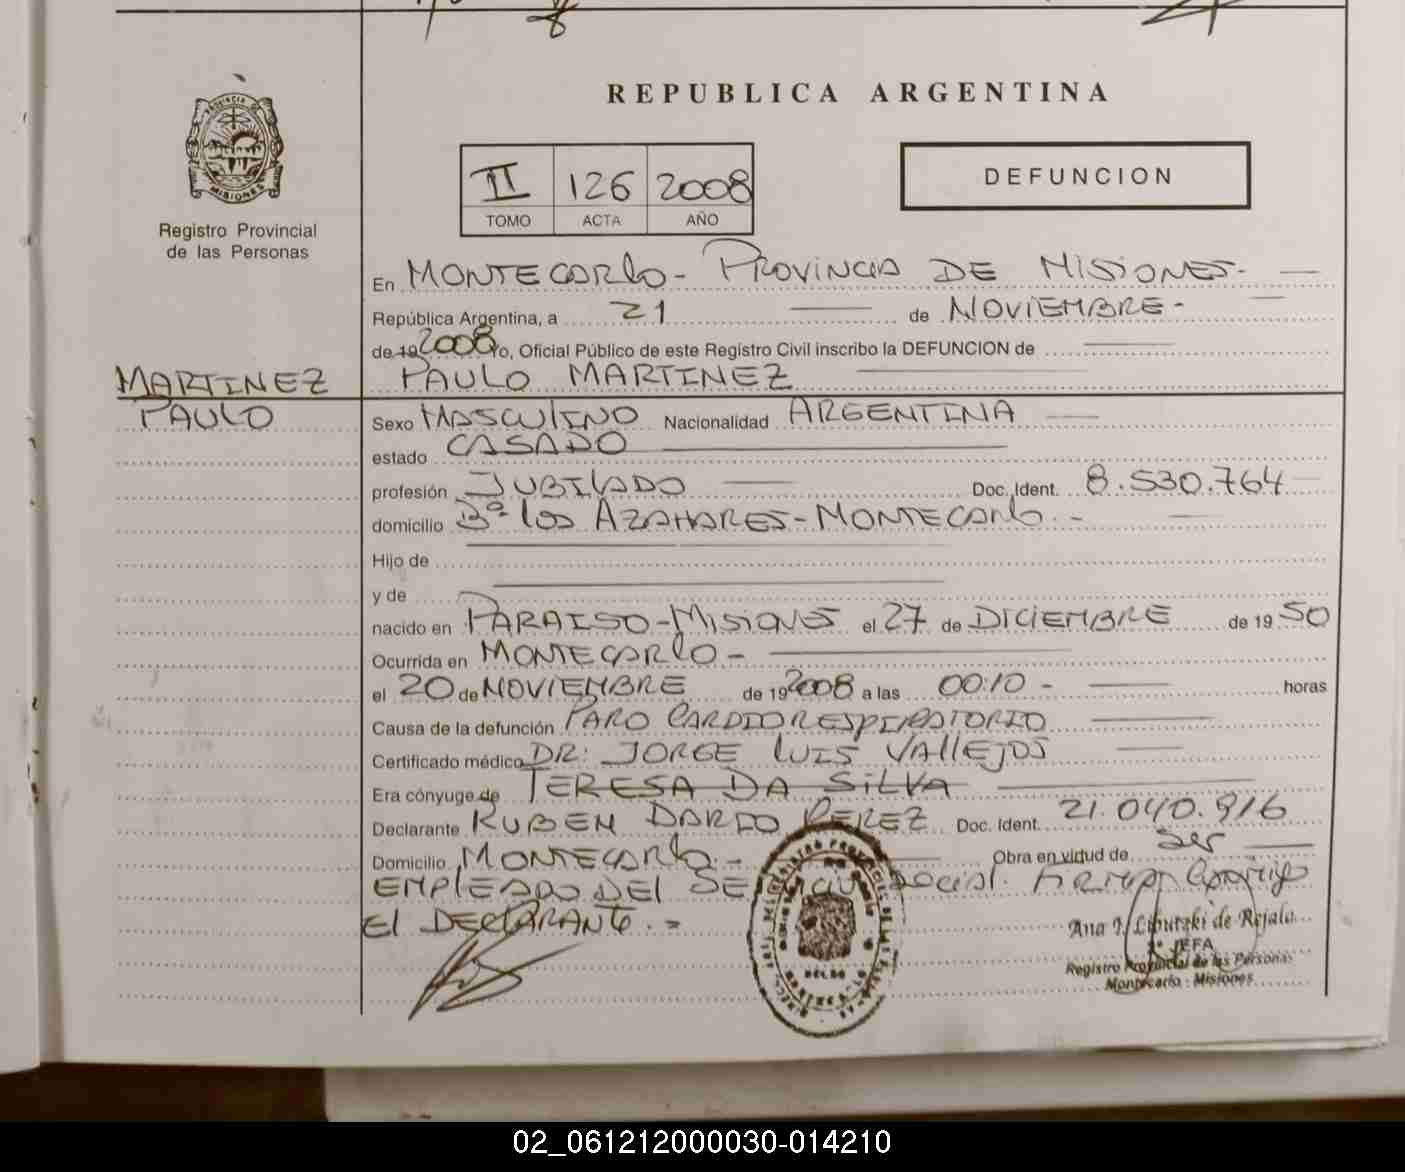 REPUBLICA ARGENTINA
PROVINCIA DE
MISIONES
Registro Provincial
de las Personas
II 126 2008
TOMO ACTA AÑO
DEFUNCION
En MONTECARLO - PROVINCIA DE MISIONES -
República Argentina, a 21 de NOVIEMBRE -
de 19 2008 Yo, Oficial Público de este Registro Civil inscribo la DEFUNCION de
MARTINEZ
PAULO
PAULO MARTINEZ
Sexo MASCULINO Nacionalidad ARGENTINA
estado CASADO
profesión JUBILADO Doc. Ident. 8.530.764
domicilio Bº los AZAHARES - MONTECARLO. -
Hijo de
y de
nacido en PARAISO - MISIONES el 27 de DICIEMBRE de 19 50
Ocurrida en MONTECARLO -
el 20 de NOVIEMBRE de 19 2008 a las 00:10 - horas
Causa de la defunción PARO CARDIORESPIRATORIO
Certificado médico DR: JORGE LUIS VALLEJOS
Era cónyuge de TERESA DA SILVA
Declarante RUBEN DARIO PEREZ Doc. Ident. 21.040.916
Domicilio MONTECARLO. - Obra en virtud de ser
EMPLEADO DEL SE social.
El DECLARANTE. =
Ana de Rejala
JEFA
Registro Provincial de las Personas
Montecarlo - Misiones
02_061212000030-014210